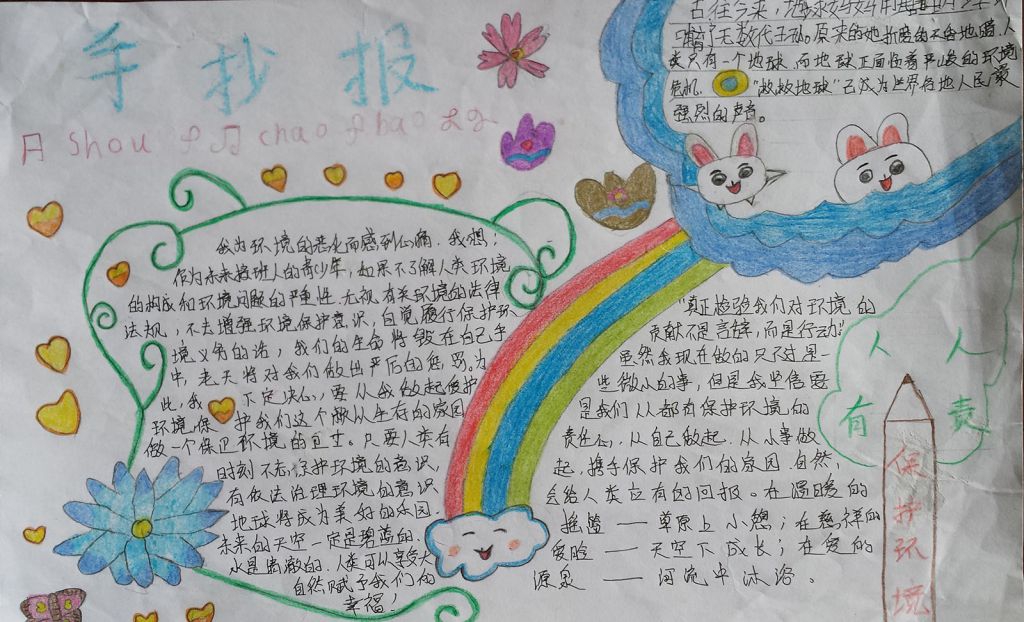 手抄报
shou chao bao
古往今来,
无数代子孙。原来的她
类只有一个地球,而地球正面临着严峻的环境
危机。“救救地球”已成为世界各地人民最
强烈的声音。
我为环境的恶化而感到心痛,我想:
作为未来接班人的青少年,如果不了解人类环境
的构成和环境问题的严重性,无视有关环境的法律
法规,不去增强环境保护意识,自觉履行保护环
境义务的话,我们的生命将毁在自己手
中,老天将对我们做出严厉的惩罚。为
此,我下定决心,要从我做起爱护
环境,保护我们这个赖以生存的家园
做一个保卫环境的卫士。只要人类有
时刻不忘保护环境的意识,
有依法治理环境的意识
地球将成为美好的乐园
未来的天空一定是碧蓝的,
水是清澈的,人类可以享受大
自然赋予我们的
幸福!
“真正检验我们对环境的
贡献不是言辞,而是行动”
虽然我现在做的只不过是一
些微小的事,但是我坚信要
是我们人人都有保护环境的
责任心,从自己做起,从小事做
起,携手保护我们的家园,自然
会给人类应有的回报。在温暖的
摇篮——草原上小憩;在慈祥的
爱脸——天空下成长;在爱的
源泉——河流中沐浴。
人人
有责
保护环境